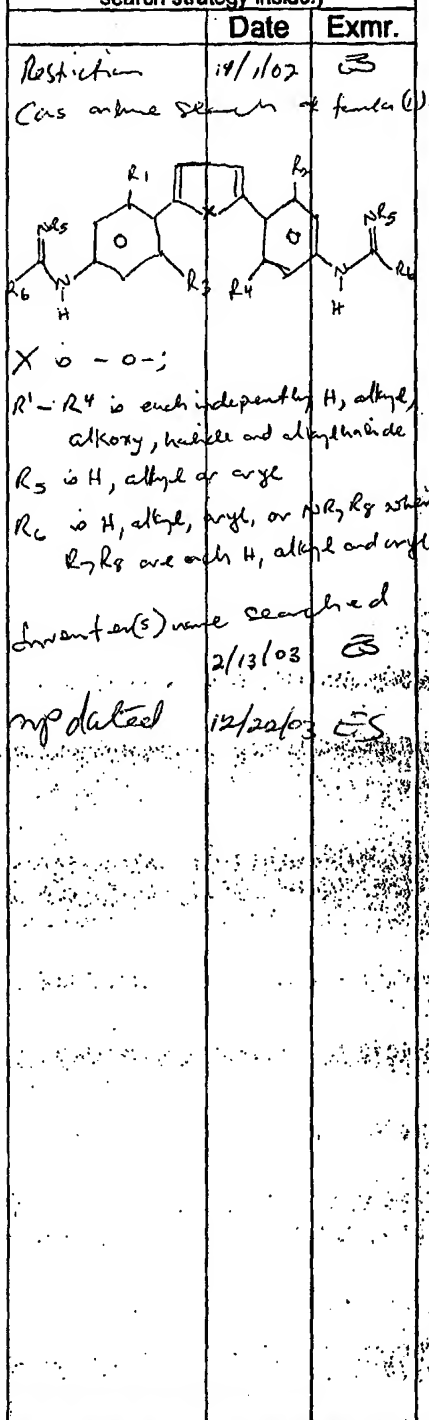 search strategy inside.)
Date Exmr.
Restriction /1/02
Cas online search of formula (1)
R1 R2
NR5 NR5
R6 N H R3 X R4 N H R6
X is -O-;
R1-R4 is each independently H, alkyl,
alkoxy, halide and alkylhalide
R5 is H, alkyl or aryl
R6 is H, alkyl, aryl, or NR7R8 where
R7R8 are each H, alkyl and aryl
Inventor(s) name searched
2/13/03 ES
updated 12/22/03 ES